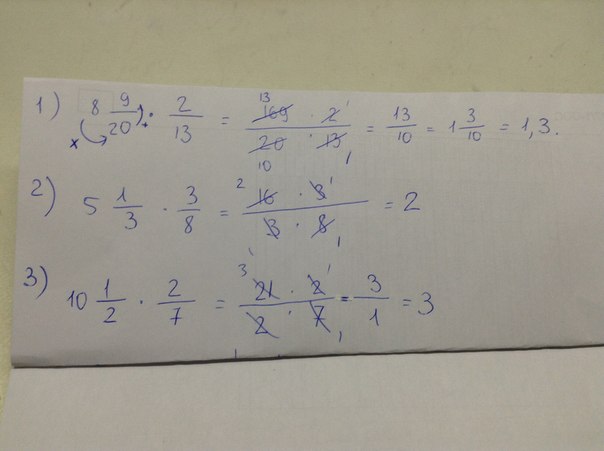 1) 8 9/20 · 2/13 = (169 · 2)/(20 · 13) = 13/10 = 1 3/10 = 1,3.
2) 5 1/3 · 3/8 = (16 · 3)/(3 · 8) = 2
3) 10 1/2 · 2/7 = (21 · 2)/(2 · 7) = 3/1 = 3